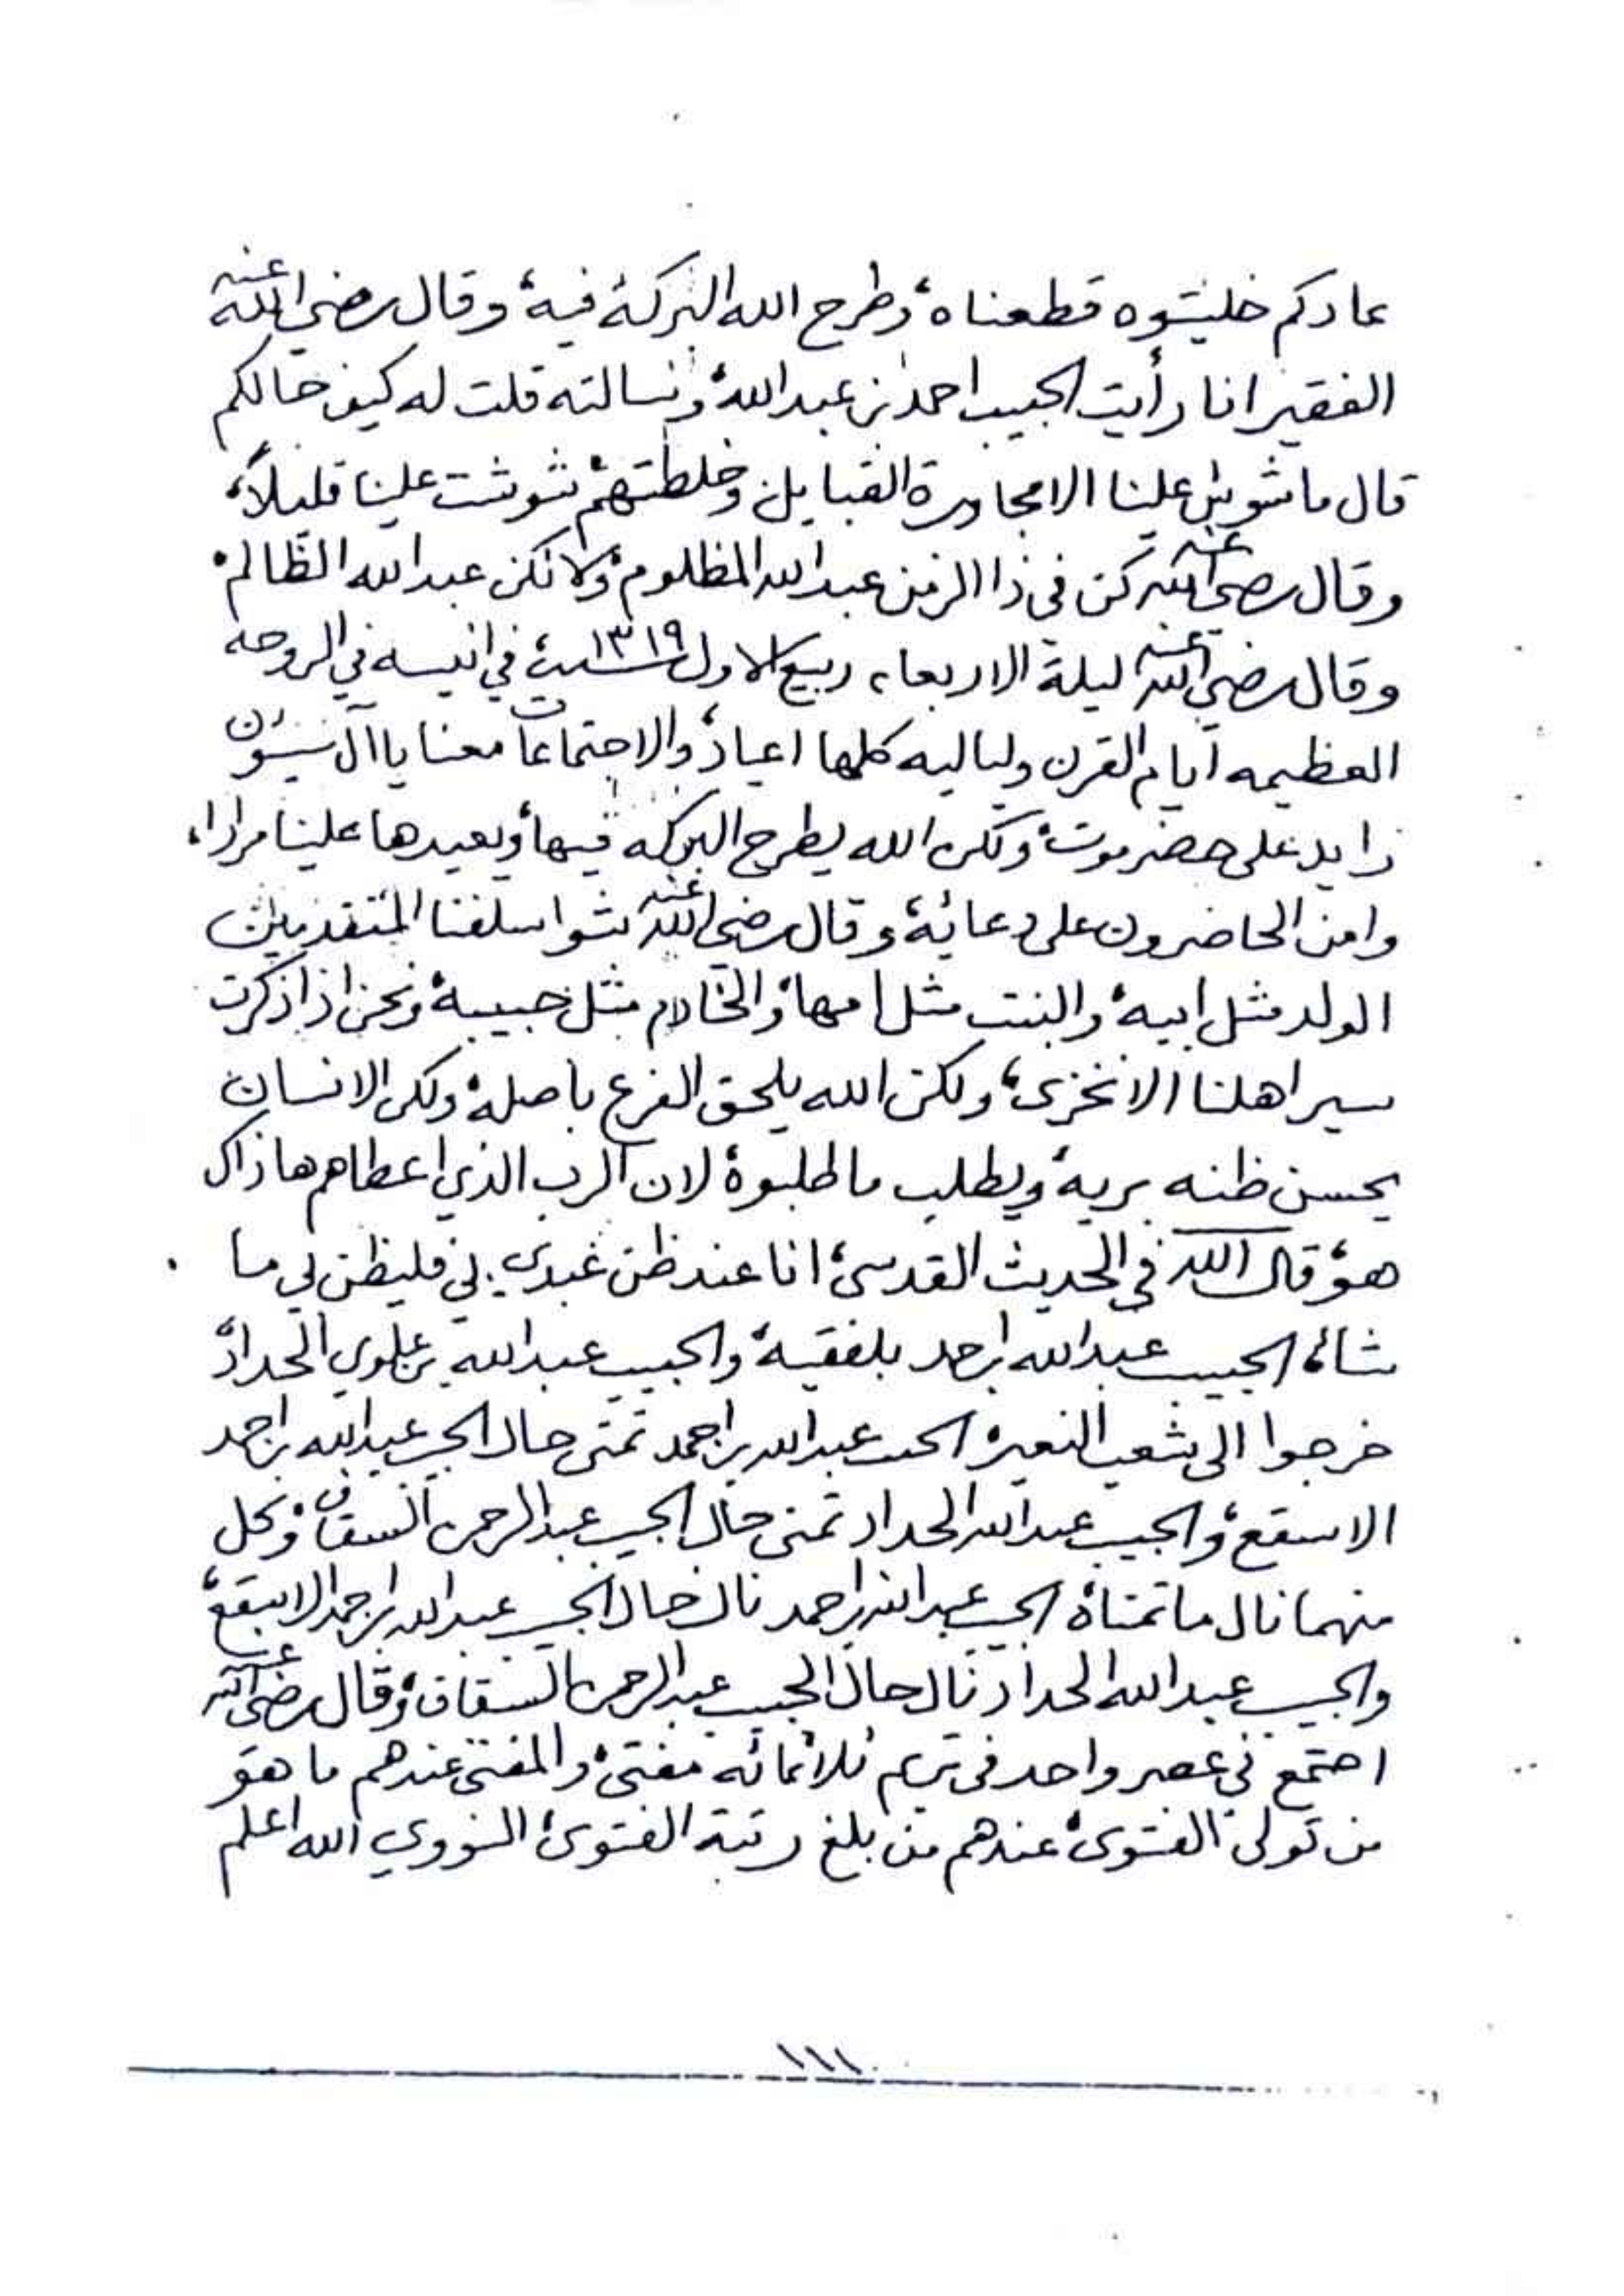 عادكم خليتوه قطعناه، وطرح الله البركة فيه، وقال رضي الله عنه
الفقير انا رأيت الحبيب احمد بن عبدالله، وسالته قلت له كيف حالكم
قال ما شوش علينا الا مجاورة القبايل، وخلطتهم، شوشت علينا قليلاً،
وقال رضي الله عنه كن في ذا الزمن عبدالله المظلوم، ولا تكن عبدالله الظالم،
وقال رضي الله عنه ليلة الاربعاء ربيع الاول سنة ١٣١٩ في انيسه في الروحه
العظيمه أيام القرن ولياليه كلها اعياد، والاجتماعات معنا يا آل سيون
زايد على حضرموت، ولكن الله يطرح البركه فيها، ويعيدها علينا مرارا،
وامن الحاضرون على دعائه، وقال رضي الله عنه شوا سلفنا المتقدمين
الولد مثل ابيه، والبنت مثل امها، والخادم مثل حبيبه، ونحن اذا ذكرت
سير اهلنا الا نخزى، ولكن الله يلحق الفرع باصله، ولكن الانسان
يحسن ظنه بربه، ويطلب ما طلبوه، لان الرب الذي اعطاهم هاذاك
هو، قال الله في الحديث القدسي، انا عند ظن عبدي بي فليظن بي ما
شاء، الحبيب عبدالله بن احمد بلفقيه، والحبيب عبدالله بن علوي الحداد،
خرجوا الى شعب النعير، الحبيب عبدالله بن احمد تمنى حال الحبيب عبدالله بن احمد
الاسقع، والحبيب عبدالله الحداد تمنى حال الحبيب عبدالرحمن السقاف، وكل
منهما نال ما تمناه، الحبيب عبدالله بن احمد نال حال الحبيب عبدالله بن احمد الاسقع،
والحبيب عبدالله الحداد نال حال الحبيب عبدالرحمن السقاف، وقال رضي الله عنه
اجتمع في عصر واحد في تريم ثلاثمائه مفتي، والمفتي عندهم ما هو
من تولى الفتوى، عندهم من بلغ رتبة الفتوى، النووي الله اعلم
١١١